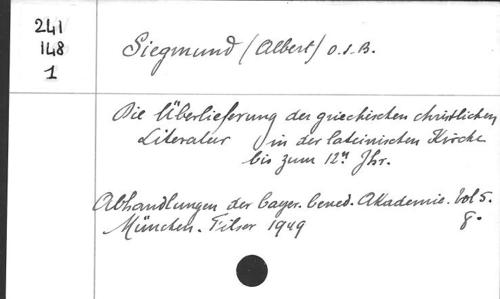 241
148
1
Siegmund (Albert) O.S.B.
Die Überlieferung der griechischen christlichen
Literatur in der lateinischen Kirche
bis zum 12n Jhr.
Abhandlungen der bayer. bened. Akademie. Vol 5.
München. Filser 1949 8.